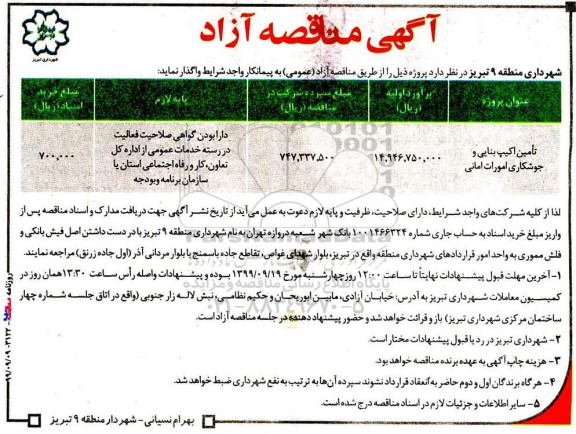 آگهی مناقصه آزاد
شهرداری تبریز
شهرداری منطقه ۹ تبریز در نظر دارد پروژه ذیل را از طریق مناقصه آزاد (عمومی) به پیمانکار واجد شرایط واگذار نماید:
عنوان پروژه
برآورد اولیه (ریال)
مبلغ سپرده شرکت در مناقصه (ریال)
پایه لازم
مبلغ خرید اسناد (ریال)
تأمین اکیپ بنایی و جوشکاری امورات امانی
۱۴,۹۴۶,۷۵۰,۰۰۰
۷۴۷,۳۳۷,۵۰۰
دارا بودن گواهی صلاحیت فعالیت در رسته خدمات عمومی از اداره کل تعاون، کار و رفاه اجتماعی استان یا سازمان برنامه وبودجه
۷۰۰,۰۰۰
لذا از کلیه شرکت‌های واجد شرایط، دارای صلاحیت، ظرفیت و پایه لازم دعوت به عمل می آید از تاریخ نشر آگهی جهت دریافت مدارک و اسناد مناقصه پس از
واریز مبلغ خرید اسناد به حساب جاری شماره ۱۰۰۱۴۶۶۳۲۴ بانک شهر شعبه دروازه تهران به نام شهرداری منطقه ۹ تبریز با در دست داشتن اصل فیش بانکی و
فلش مموری به واحد امور قراردادهای شهرداری منطقه واقع در تبریز، بلوار شهدای غواص، تقاطع جاده باسمنج با بلوار مردانی آذر (اول جاده زرنق) مراجعه نمایند.
۱- آخرین مهلت قبول پیشنهادات نهایتاً تا ساعت ۱۲:۰۰ روز چهارشنبه مورخ ۱۳۹۹/۰۹/۱۹ بوده و پیشنهادات واصله رأس ساعت ۱۳:۳۰ همان روز در
کمیسیون معاملات شهرداری تبریز به آدرس: خیابان آزادی، مابین ابوریحان و حکیم نظامی، نبش لاله زار جنوبی (واقع در اتاق جلسه شماره چهار
ساختمان مرکزی شهرداری تبریز) باز و قرائت خواهد شد و حضور پیشنهاد دهنده در جلسه مناقصه آزاد است.
۲- شهرداری تبریز در رد یا قبول پیشنهادات مختار است.
۳- هزینه چاپ آگهی به عهده برنده مناقصه خواهد بود.
۴- هرگاه برندگان اول و دوم حاضر به انعقاد قرارداد نشوند سپرده آن‌ها به ترتیب به نفع شهرداری ضبط خواهد شد.
۵- سایر اطلاعات و جزئیات لازم در اسناد مناقصه درج شده است.
بهرام نسیانی - شهردار منطقه ۹ تبریز